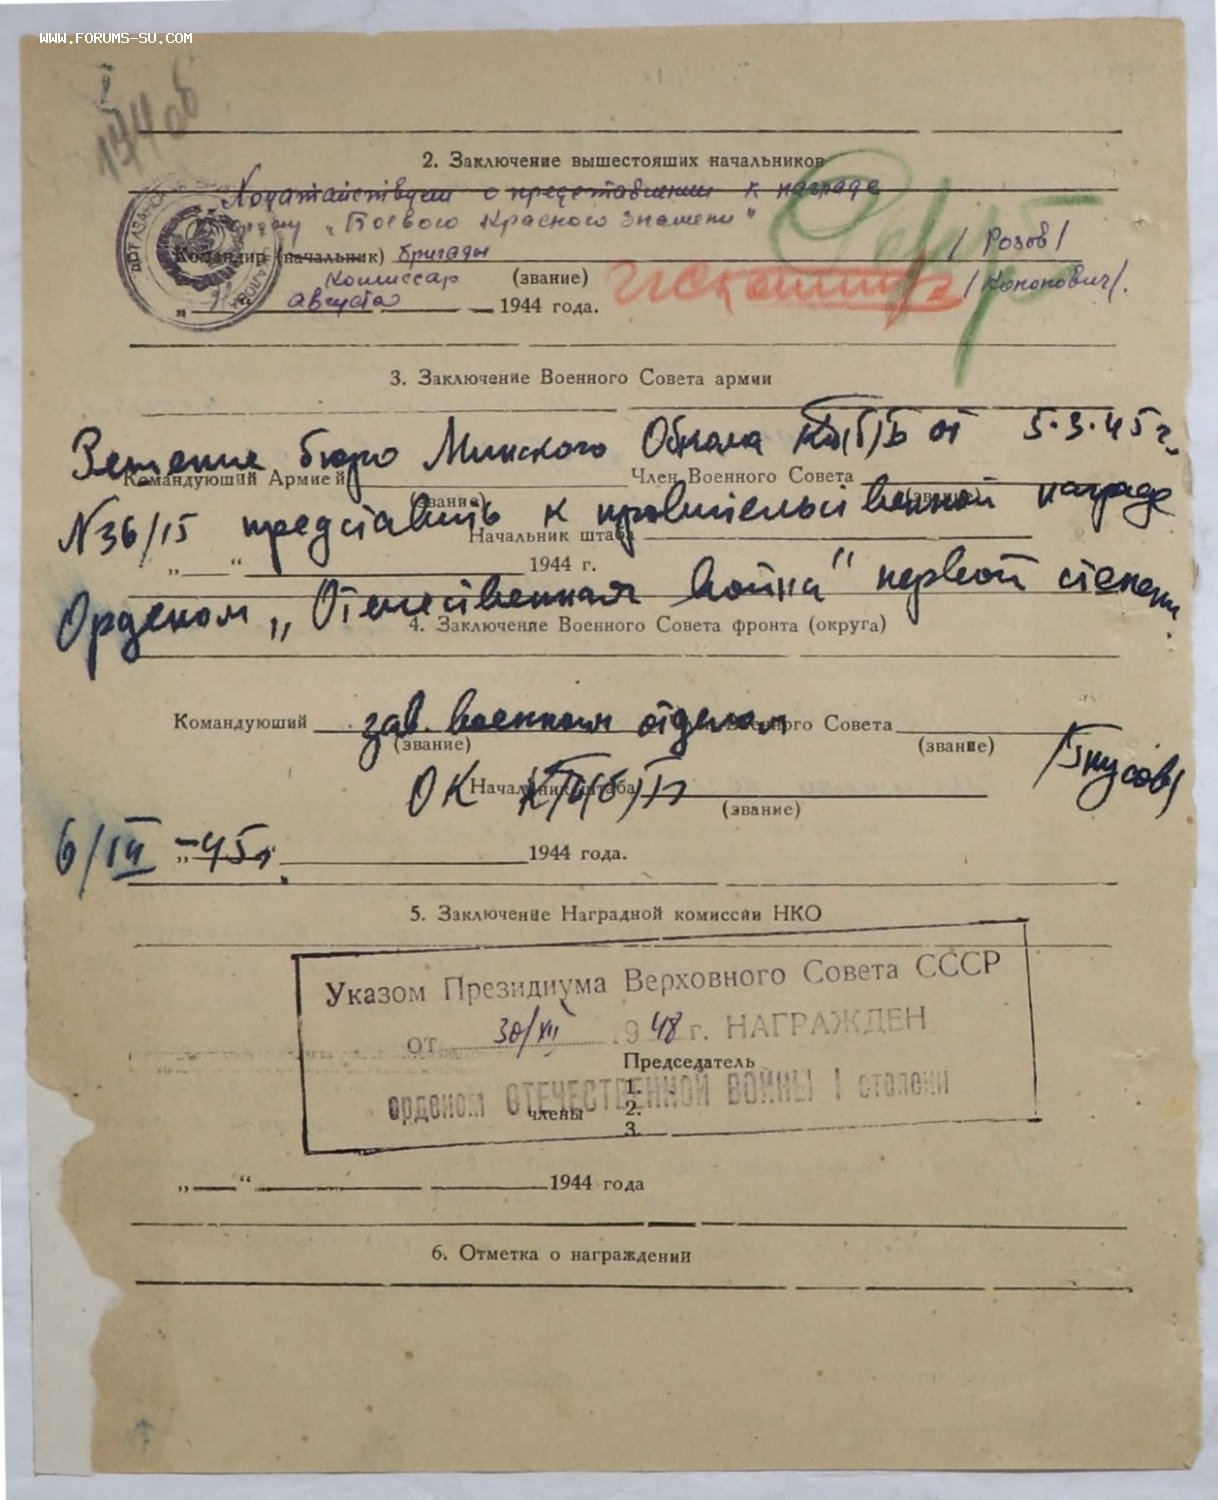 WWW.FORUMS-SU.COM
174 об
2. Заключение вышестоящих начальников
Ходатайствуем о представлении к награде
ордену „Боевого Красного Знамени"
Командир (начальник) бригады /Розов/
Комиссар (звание) /Кононович/.
августа 1944 года.
3. Заключение Военного Совета армии
Решение бюро Минского Обкома КП(б)Б от 5.3.45 г.
Командующий Армией Член Военного Совета
(звание) (звание)
N 36/15 представить к правительственной награде
Начальник штаба
„ “ 1944 г.
Орденом „Отечественная война" первой степени.
4. Заключение Военного Совета фронта (округа)
Командующий зав. военным отделом Военного Совета
(звание) (звание)
ОК КП(б)Б
Начальник штаба
(звание)
6/III -45 г. „ 1944 года.
5. Заключение Наградной комиссии НКО
Указом Президиума Верховного Совета СССР
от 30/XII 1948 г. НАГРАЖДЕН
Председатель
орденом ОТЕЧЕСТВЕННОЙ ВОЙНЫ I степени
1.
члены 2.
3.
„ “ 1944 года
6. Отметка о награждении